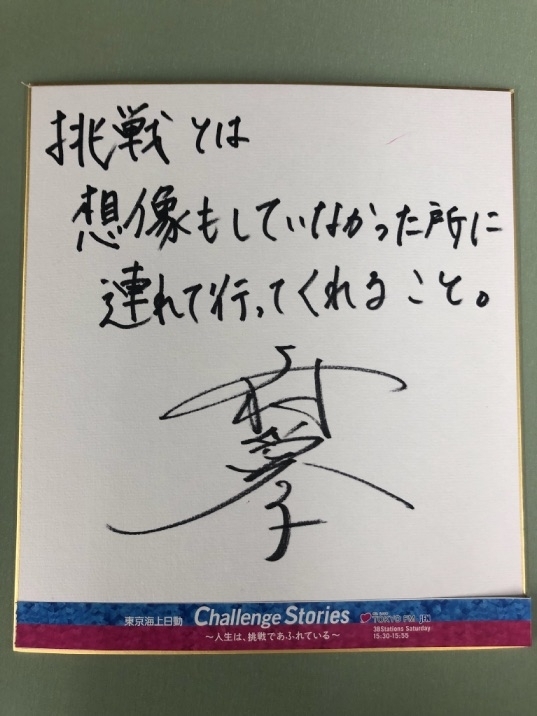 挑戦とは
想像もしていなかった所に
連れて行ってくれること。
東京海上日動 Challenge Stories
～人生は、挑戦であふれている～
TOKYO FM JFN
38 Stations Saturday
15:30-15:55